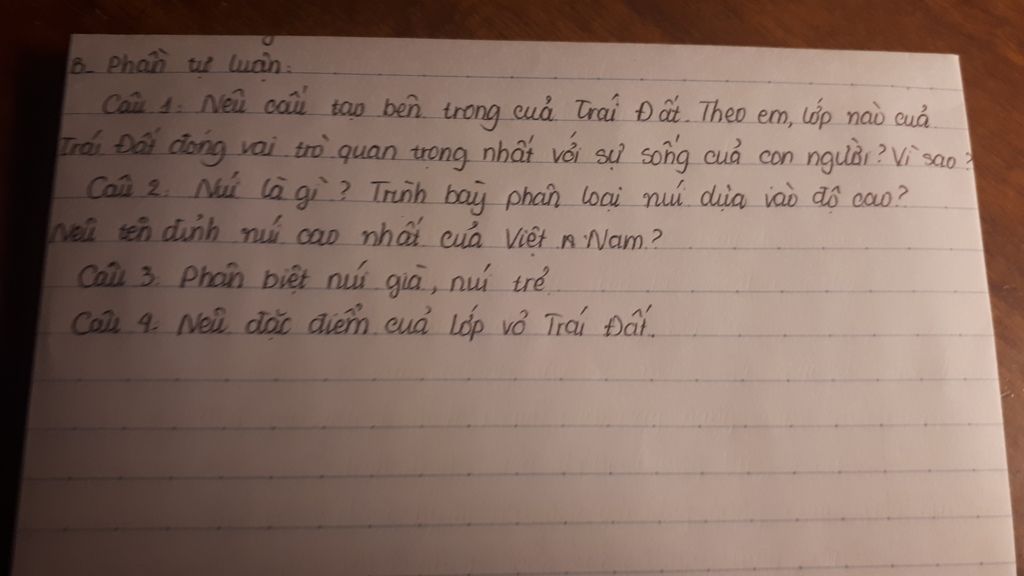 B- Phần tự luận:
Câu 1: Nêu cấu tạo bên trong của Trái Đất. Theo em, lớp nào của
Trái Đất đóng vai trò quan trọng nhất với sự sống của con người? Vì sao?
Câu 2: Núi là gì? Trình bày phân loại núi dựa vào độ cao?
Nêu tên đỉnh núi cao nhất của Việt Nam?
Câu 3: Phân biệt núi già, núi trẻ
Câu 4: Nêu đặc điểm của lớp vỏ Trái Đất.